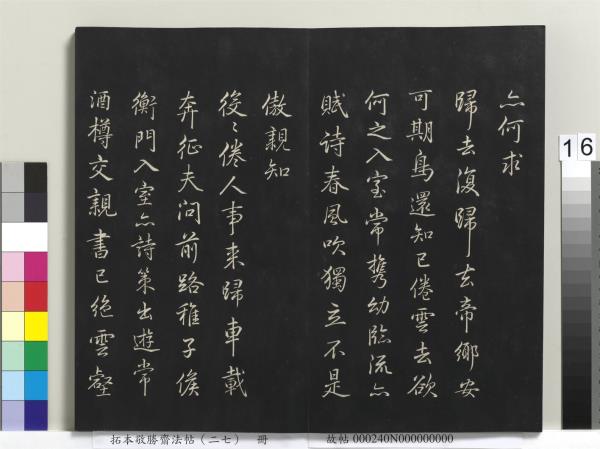 亦何求
歸去復歸去帝鄉安
可期鳥還知已倦雲去欲
何之入室常攜幼臨流亦
賦詩春風吹獨立不是
傲親知
役〻倦人事來歸車載
奔征夫問前路稚子候
衡門入室亦詩策出遊常
酒樽交親書已絕雲壑
16
拓本敬勝齋法帖（二七） 冊 故帖 000240N000000000